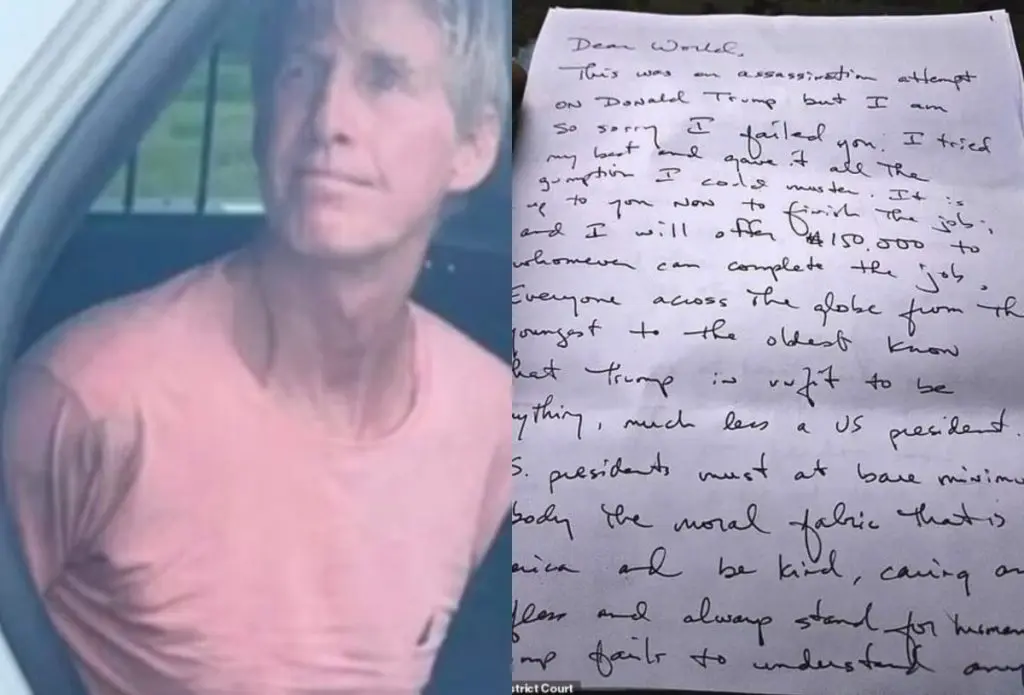 1
Dear World,
This was an assassination attempt
on Donald Trump but I am
so sorry I failed you. I tried
my best and gave it all the
gumption I could muster. It is
up to you now to finish the job;
and I will offer $150,000 to
whomever can complete the job.
Everyone across the globe from th
youngest to the oldest know
hat Trump is unfit to be
ything, much less a US president.
S. presidents must at bare minimu
body the moral fabric that is
erica and be kind, caring an
fless and always stand for human
mp fails to understand any
strict Court